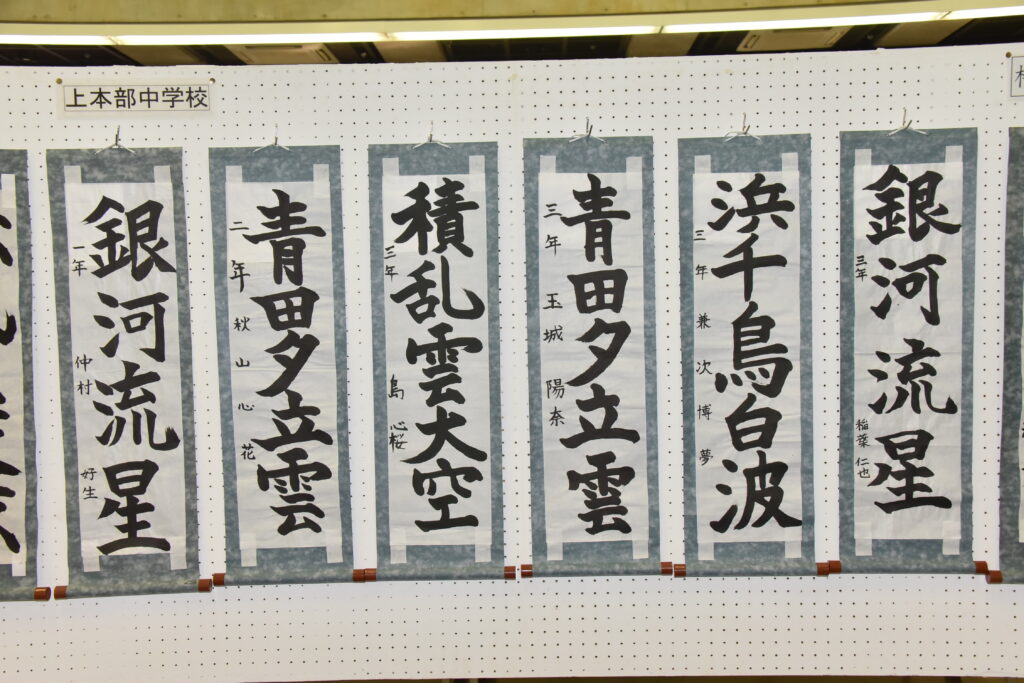 上本部中学校
銀河流星
一年 仲村 好生
青田夕立雲
二年 秋山心花
積乱雲大空
三年 島 心桜
青田夕立雲
三年 玉城 陽奈
浜千鳥白波
三年 兼次博夢
銀河流星
三年 稲葉 仁也